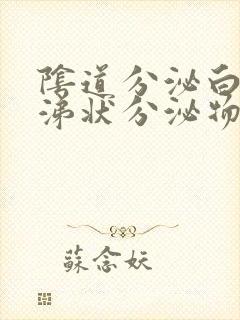 陰道分泌白
涕狀分泌物
蘇念妖